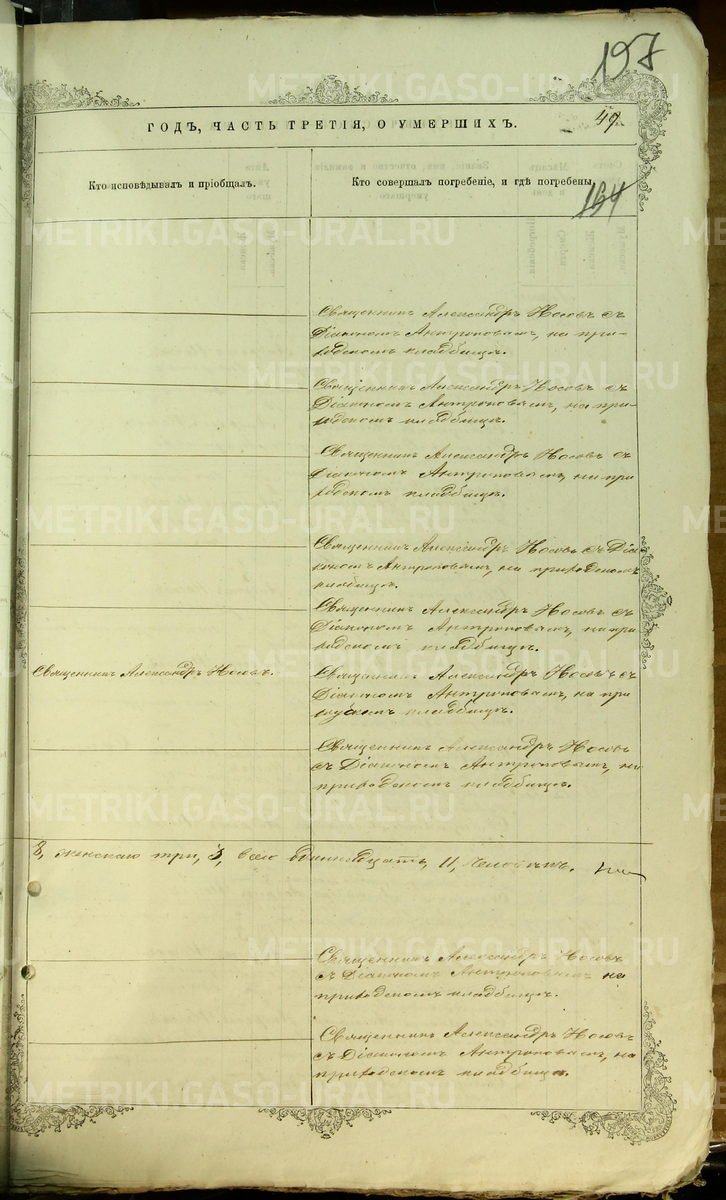 197
ГОДЪ, ЧАСТЬ ТРЕТІЯ, О УМЕРШИХЪ.
49.
Кто исповѣдывалъ и пріобщалъ.
Кто совершалъ погребеніе, и гдѣ погребены.
164
Священникъ Александръ Носовъ съ
Діакономъ Антроповымъ, на при-
ходскомъ кладбищѣ.
Священникъ Александръ Носовъ съ
Діакономъ Антроповымъ, на при-
ходскомъ кладбищѣ.
Священникъ Александръ Носовъ съ
Діакономъ Антроповымъ, на при
ходскомъ кладбищѣ.
Священникъ Александръ Носовъ съ Діа
кономъ Антроповымъ, на приходскомъ
кладбищѣ.
Священникъ Александръ Носовъ съ
Діакономъ Антроповымъ, на при
ходскомъ кладбищѣ.
Священникъ Александръ Носовъ.
Священникъ Александръ Носовъ съ
Діакономъ Антроповымъ, на при
ходскомъ кладбищѣ.
Священникъ Александръ Носовъ
съ Діакономъ Антроповымъ, на
приходскомъ кладбищѣ.
8, женскаго три, 3, всего одиннадцать, 11, человѣкъ.
Священникъ Александръ Носовъ
съ Діакономъ Антроповымъ на
приходскомъ кладбищѣ.
Священникъ Александръ Носовъ
съ Діакономъ Антроповымъ, на
приходскомъ кладбищѣ.
METRIKI.GASO-URAL.RU